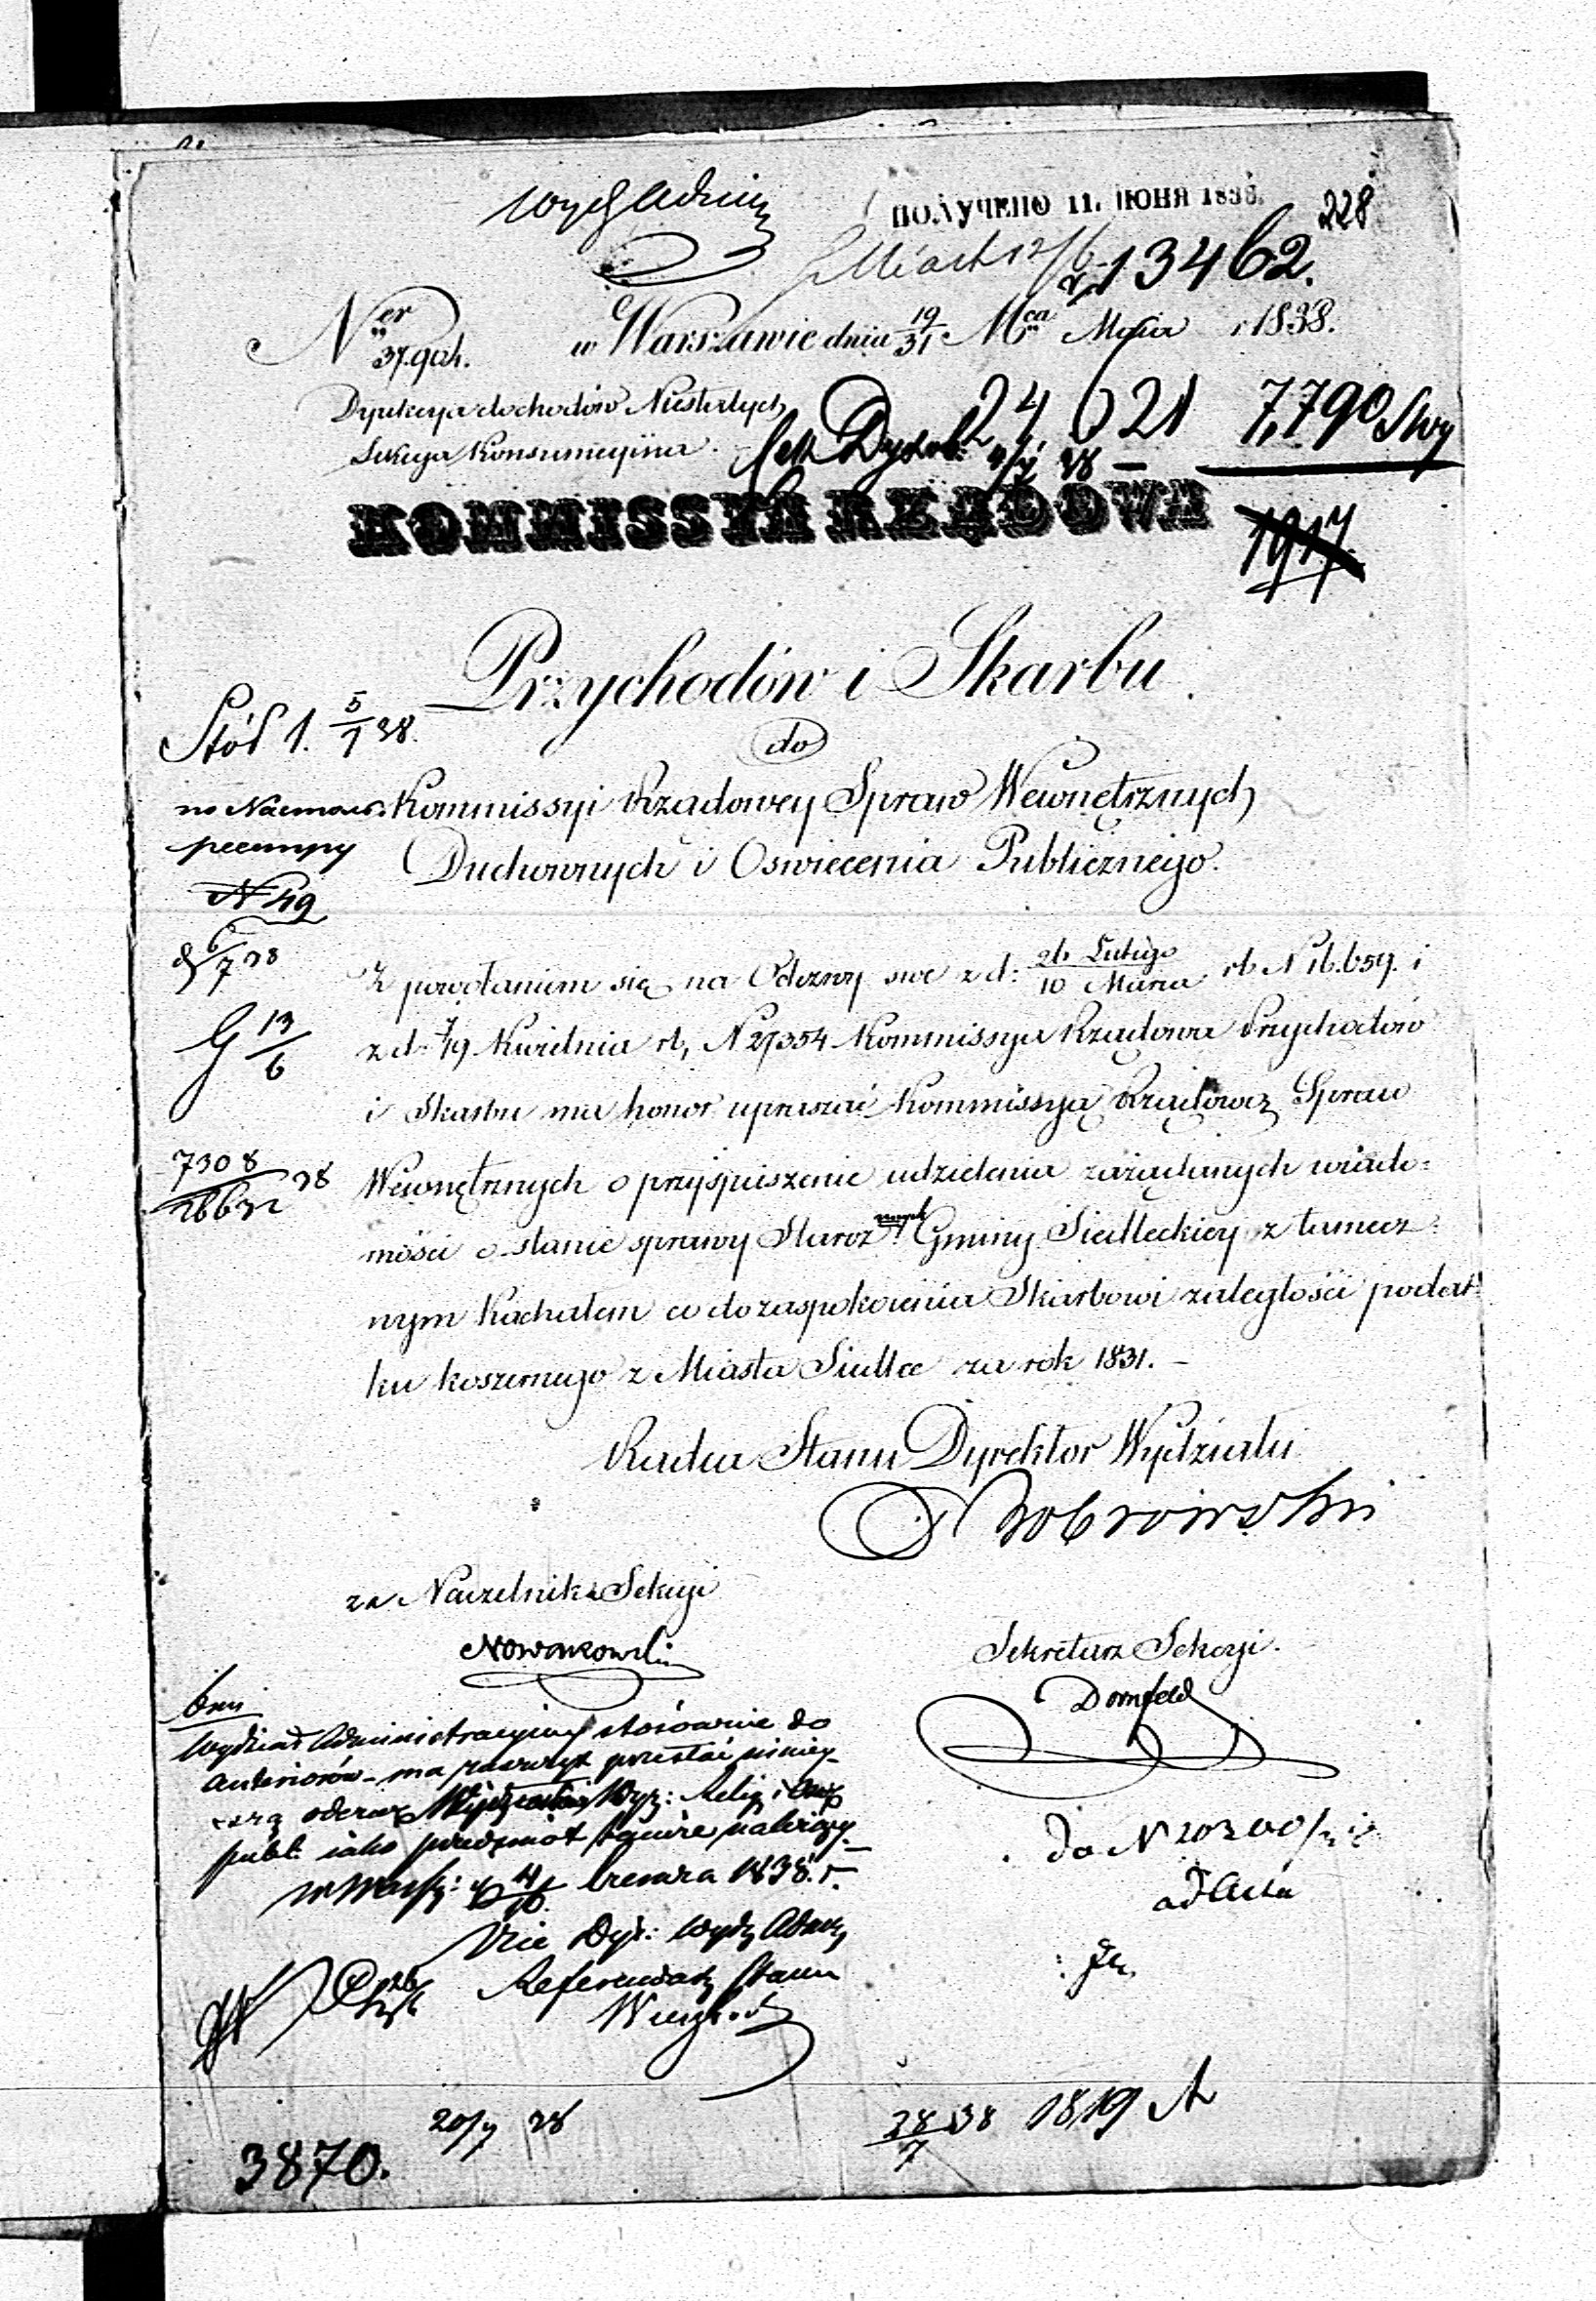 Wydz Admin
ПОЛУЧЕНО 11. ІЮНЯ 1838.
228
12/6 13462.
Ner 37,904.
w Warszawie dnia 19/31 Mca Maja r 1838.
Dyrekcya dochodów Niestałych
Sekcya Konsumcyjna.
24 621
7,790
1917
KOMMISSYA RZĄDOWA
Przychodów i Skarbu
do
5/7 38.
Kommissyi Rządowey Spraw Wewnętrznych
Duchownych i Oswiecenia Publicznego.
N 49
6/7 38
Z powołaniem się na Odezwy swe z d: 26 Lutego / 10 Marca rb N 16.659. i
z d. 7/19 Kwietnia rb, N 27354 Kommissya Rządowa Przychodów
G 13/6
i Skarbu ma honor upraszać Kommissyą Rządową Spraw
7308 / 38
Wewnętrznych o przyśpieszenie udzielenia zażądanych wiado=
mości o stanie sprawy Staroz Gminy Siedleckiey z tamecz=
nym Kachałem co do zaspokoienia Skarbowi zaległości podat=
ku koszernego z Miasta Siedlce za rok 1831. –
Radca Stanu Dyrektor Wydziału
za Naczelnika Sekcyi
Nowakowski
Sekretarz Sekcyi.
Dornfeld
Wydział Administracyiny stosownie do
anteriorów ma zaszczyt przesłać niniey-
szą odezwę Wyz: Relig: i Ośw
publ: iako przedmiot tamże należący
w Warsz: d 4/16 Czerwca 1838. r.
Vice Dyr: Wydz Admin
Referendarz Stanu
Do N 20300
ad acta
20/7 38
28/7 38 1819
3870.